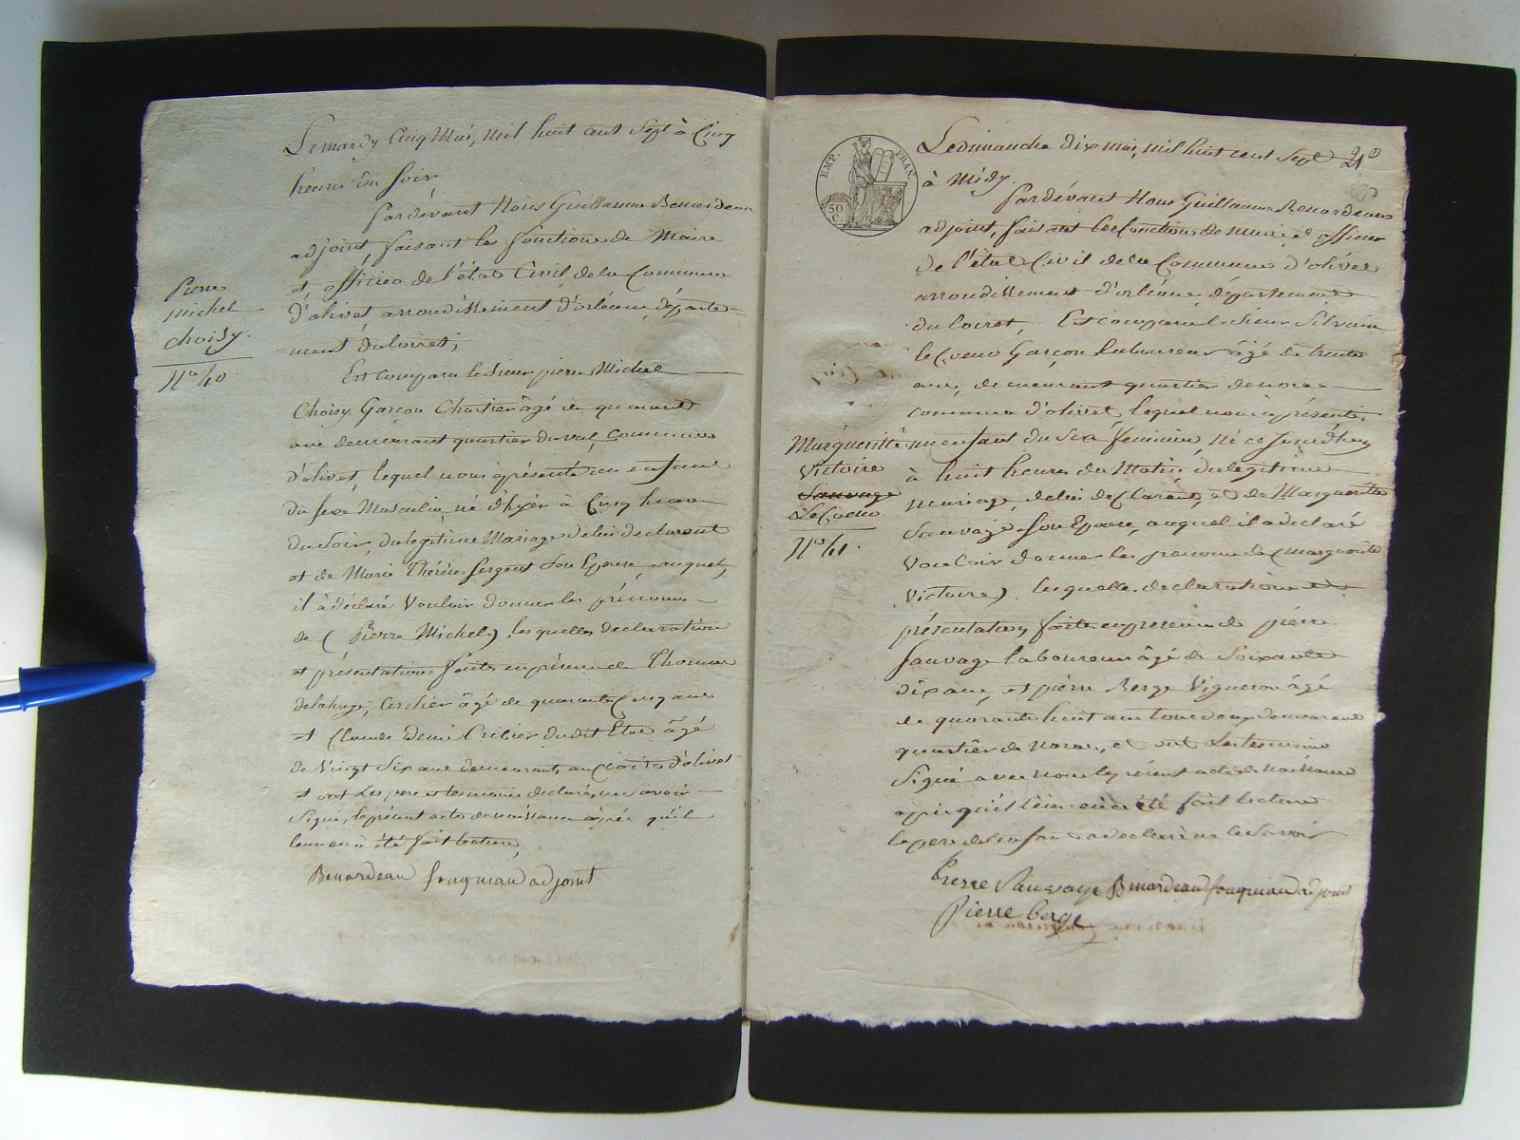 Le mardy Cinq Mai, mil huit cent Sept à Cinq
heures du Soir,
Pardévant Nous Guillaume Benardeau
adjoint, faisant les fonctions de Maire
et officier de l'état Civil de la Commune
d'olivet arrondissement d'orléans, départe-
ment du loiret,
Pierre
michel
choisy.
N.º 40
Est comparu le Sieur pierre Michel
Choisy Garçon Chartier âgé de quarante
ans demeurant quartier du val, Commune
d'olivet, lequel nous a présenté un enfant
du sexe Masculin, né d'hyer à Cinq heures
du Soir, du légitime Mariage de lui declarant
et de Marie Thérèse Sergent Son Epouse, auquel
il à déclaré Vouloir donner les prénoms
de (Pierre Michel) lesquelles declaration
et présentation faites en présence de Thomas
delahaye, Cerclier âgé de quarante Cinq ans
et Claude Denis Cribier dudit Etat âgé
de Vingt Six ans demeurants au d'olivet
et ont Les pere et temoins declaré ne savoir
Signer, le présent acte de naissance après qu'il
leur en à été fait lecture,
Benardeau fouqueau adjoint
EMP. FRAN.
50 C
21
Le dimanche dix mai, mil huit cent Sept
à Midy
Pardévant Nous Guillaume Benardeau
adjoint, faisant les fonctions de Maire et officier
de l'état Civil de la Commune d'olivet
arrondissement d'orléans, département
du loiret, Est comparu le Sieur Silvain
le Cœur Garçon Laboureur âgé de trente
ans, demeurant quartier de noras
commune d'olivet, lequel nous à présenté
Margueritte
Victoire
Sauvage
Le Cœur
N.º 41.
un enfant du Sexe féminin, né ce jourd'huy
à huit heures du Matin, du légitime
mariage, de lui déclarant, et de Margueritte
Sauvage Son Epouse, auquel il a declaré
Vouloir donner les prenoms de (Margueritte
Victoire) lesquelles declaration et
présentation faites en presence de pierre
Sauvage laboureur âgé de Soixante
dix ans, et pierre Berge Vigneron âgé
de quarante huit ans tous deux demeurant
quartier de noras, et ont Les temoins
Signé avec nous le présent acte de naissance
après qu'il leur en à été fait lecture
le pere de l'enfant a declaré ne le Savoir
Pierre Sauvage Benardeau fouqueau adjoint
Pierre berge